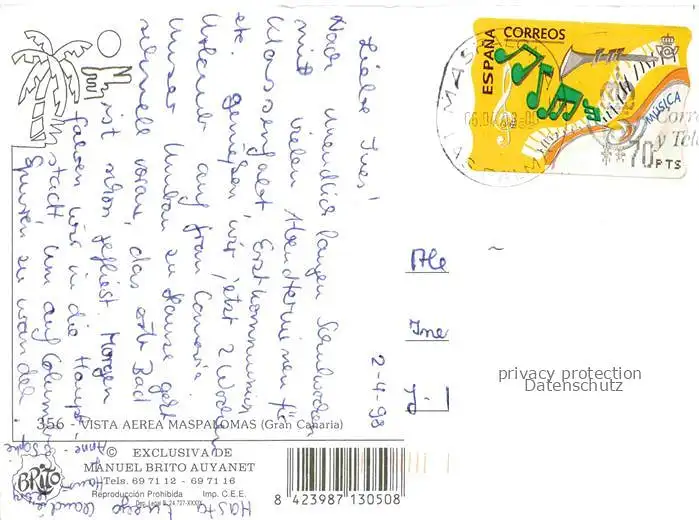 Liebe Ines!
Nach unendlich langen Schulwochen
mit vielen Abendterminen für
etc. genießen wir jetzt 2 Wochen
Urlaub auf Gran Canaria.
Unser Umbau zu Hause geht
schnell voran, das erste Bad
ist schon gefliest. Morgen
fahren wir in die Haupt-
stadt um auf Columbus
Spuren zu wandeln.
Hasta luego
Anne-Sophie
2-4-98
ESPAÑA
CORREOS
MÚSICA
70 PTS
Correos
y Tel
Ine
privacy protection
Datenschutz
356 - VISTA AEREA MASPALOMAS (Gran Canaria)
© EXCLUSIVA DE
MANUEL BRITO AUYANET
Tels. 69 71 12 - 69 71 16
Reproducción Prohibida Imp. C.E.E.
BRITO
8 423987 130508